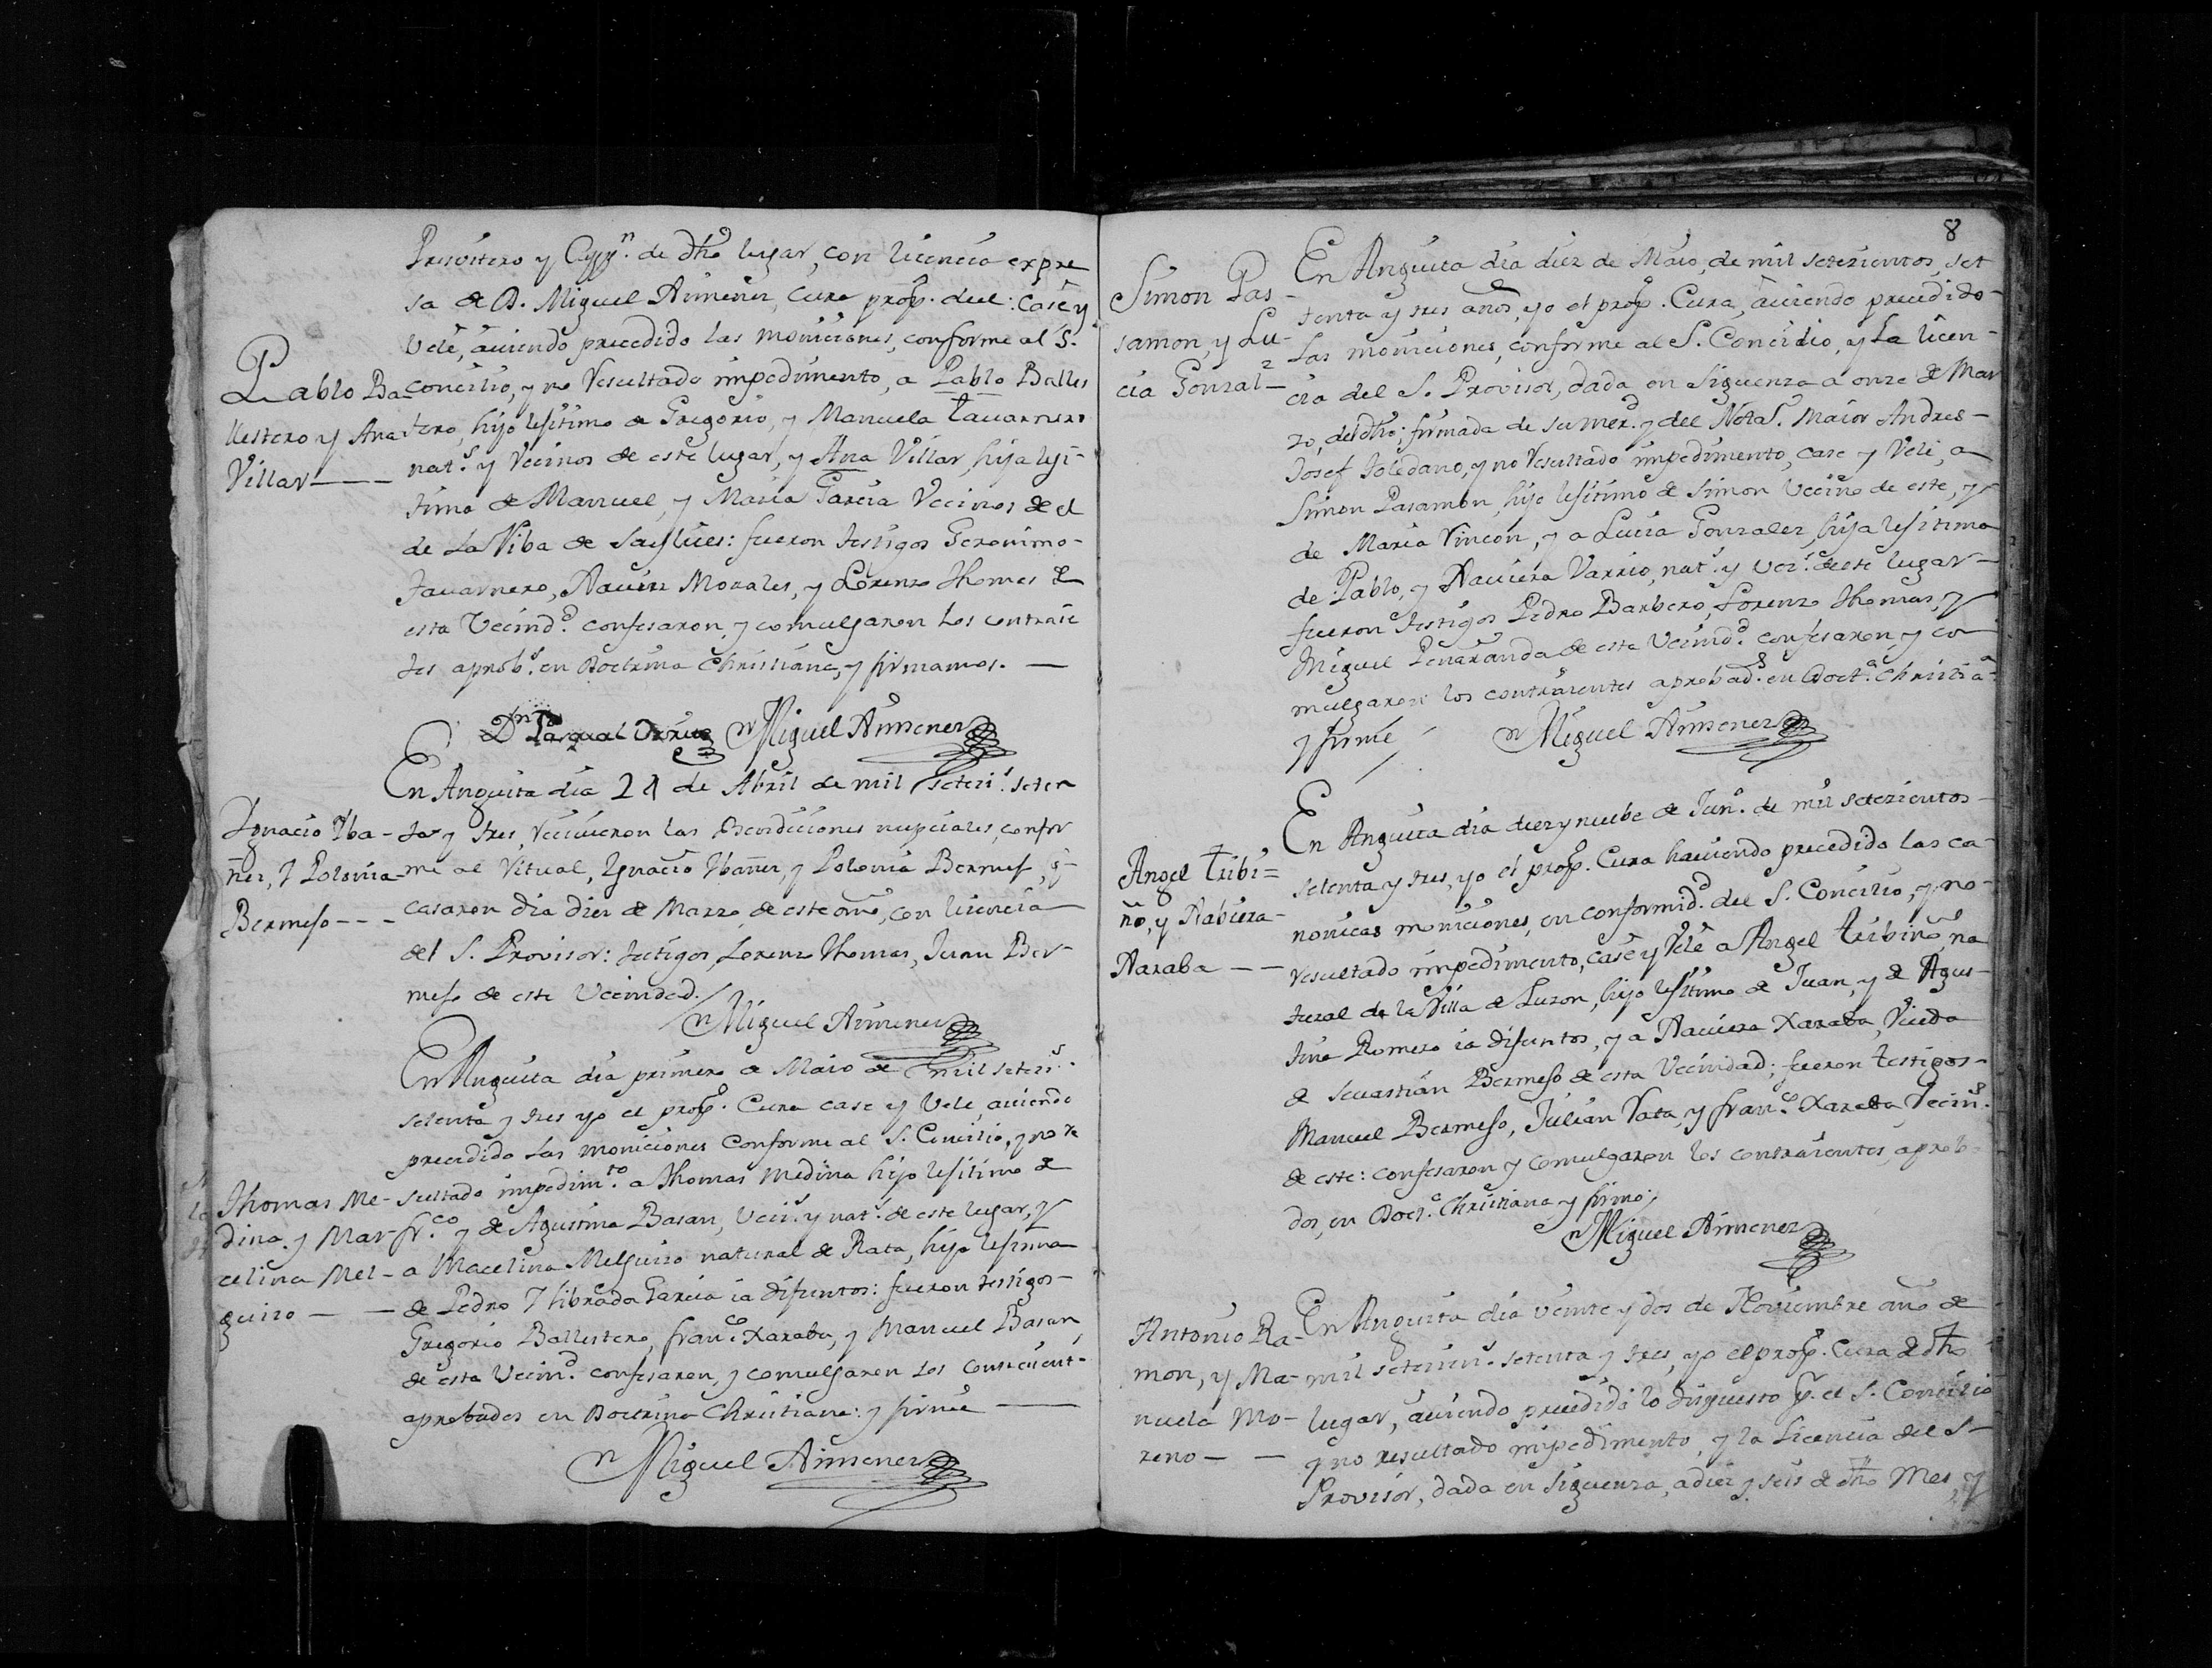 Presvitero y Capp.n de dho lugar, con licencia expre
sa de D. Miguel Ximenez, Cura prop. del: Case y
Vele, aviendo precedido las moniciones, conforme al S.
Pablo Ba-
llestero y Ana
Villar — —
concilio, y no Resultado impedimento, a Pablo Balles
tero, hijo lejitimo de Gregorio, y Manuela Tavarnero
nat.s y Vecinos de este lugar, y Ana Villar, hija leji-
tima de Manuel, y Maria Garcia Vecinos de el
de La Riba de Saelices: fueron testigos Geronimo-
Tavarnero, Xavier Morales, y Lorenzo Thomas de
esta Vecind.d confesaron, y comulgaron los contraie
tes aprob.s en Doctrina Christiana, y firmamos. —
Dn Pasqual Orruz Miguel Ximenez
En Anguita dia 21 de Abril de mil seteci.s seten
Ignacio Yba-
ñez, y Polonia
Bermejo - - -
ta y tres, Recivieron las Bendiciones nupciales, confor
me al Ritual, Ygnacio Ybañez, y Polonia Bermejo, q
casaron dia diez de Marzo de este año, con licencia
del S. Provisor: testigos, Lorenzo Thomas, Juan Ber-
mejo de esta Vecindad.
Miguel Ximenez
En Anguita dia primero de Maio de mil seteci.s
setenta y tres yo el prop. Cura case y Vele, aviendo
precedido las moniciones Conforme al S. Concilio, y no re
Thomas Me-
dina, y Mar-
celina Mel-
guizo — —
sultado impedim.to a Thomas Medina hijo lejitimo de
fr.co y de Agustina Basan, Veci.s y nat.s de este lugar, y
a Macelina Melguizo natural de Rata, hija lejitima
de Pedro y Librada Garcia ia difuntos: fueron testigos-
Gregorio Ballestero, fran.co Xaraba, y Manuel Basan,
de esta Vecind.d confesaron, y comulgaron los contraient-
aprobados en Doctrina Christiana: y firmé —
Miguel Ximenez
8
Simon Pas-
samon, y Lu-
cia Gonzalz
En Anguita dia diez de Maio, de mil setezientos, set
tenta y tres años, yo el prop. Cura, aviendo precedido-
Las moniciones, conforme al S. Concidio, y La licen-
cia del S. Provisor, dada en Siguenza a onze de Mar
zo, del dho; firmada de su mer.d y del Nota.s Maior Andres-
Josef Toledano, y no Resultado impedimento, case y Velé, a
Simon Pasamon, hijo lejitimo de Simon Vecino de este, y
de Maria Rincon, y a Lucia Gonzalez, hija lejitima
de Pablo, y Xaviera Varrio, nat.s y Vez.s de este lugar-
fueron testigos Pedro Barbero, Lorenzo Thomas, y
Miguel Penaranda de esta Vecind.d confesaron, y co
mulgaron los contraientes aprobad.s en Doct.a Christia-
y firmé Miguel Ximenez
En Anguita dia diez y nuebe de Jun.o de mil setezientos-
Angel Tribi=
ño, y Xabiera-
Xaraba — —
setenta y tres, yo el prop. Cura haviendo precedido las ca-
nonicas moniciones, en conformid.d del S. Concilio, y no-
resultado impedimento, case y Velé a Angel Tribiño, na
tural de la Villa de Luzon, hijo lejitimo de Juan, y de Agus-
tina Romero ia difuntos, y a Xaviera Xaraba, Viuda
de Sevastian Bermejo de esta Vecindad; fueron testigos-
Manuel Bermejo, Julian Rata, y fran.co Xaraba, Vecin.s
de este: confesaron y comulgaron los contraientes, aprob-
dos, en Doct.a Christiana y firmo;
Miguel Ximenez
Antonio Ra-
mon, y Ma-
nuela Mo-
reno — —
En Anguita dia veinte y dos de Noviembre año de
mil setecien.s setenta y tres, yo el prop. Cura de dho
lugar, aviendo precedido lo dispuesto p.r el S. Concilio
y no resultado impedimento, y la Licencia del S-
Provisor, dada en Siguenza, a diez y seis de dho Mes, y